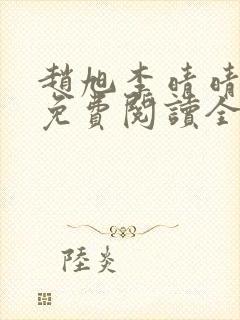 趙旭李晴晴
免費閱讀全
陸炎